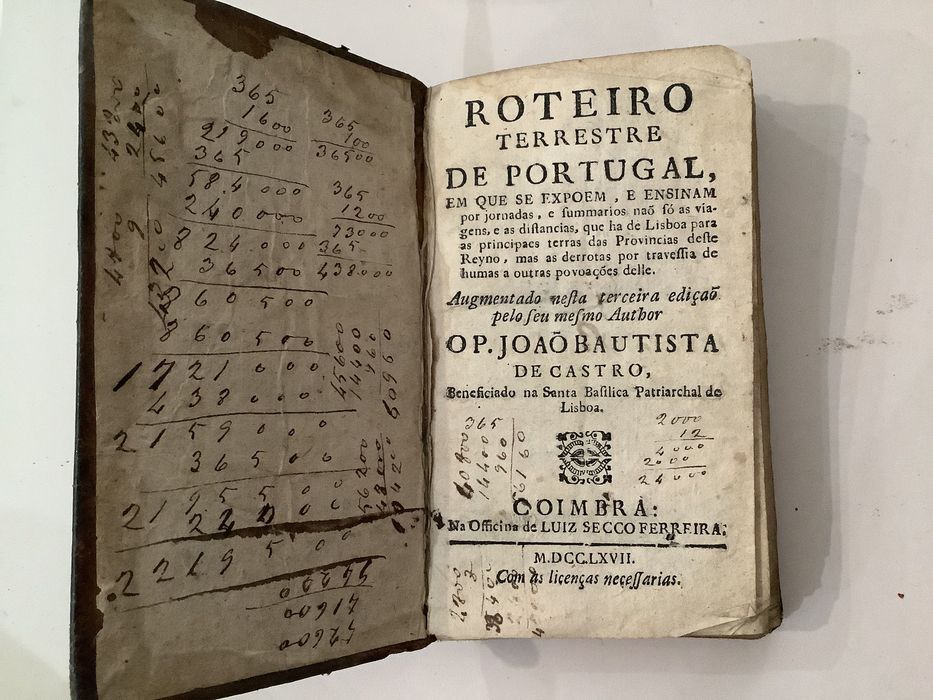 365
1600
219000
365
584000
240000
824000
36500
860500
860500
1721000
438000
2159000
36500
2195500
2219500
365
100
36500
365
1200
73000
365
438000
45600
14400
960
60960
56200
48000
10420
43800
2400
45600
4400
71600
72600
ROTEIRO
TERRESTRE
DE PORTUGAL,
EM QUE SE EXPOEM, E ENSINAM
por jornadas, e summarios naõ ſó as via-
gens, e as diſtancias, que ha de Lisboa para
as principaes terras das Provincias deſte
Reyno, mas as derrotas por traveſſia de
humas a outras povoações delle.
Augmentado neſta terceira ediçaõ
pelo ſeu meſmo Author
O P. JOAÕ BAUTISTA
DE CASTRO,
Beneficiado na Santa Baſilica Patriarchal de
Lisboa.
365
40800
14400
960
56160
2000
12
4000
2000
24000
COIMBRA:
Na Officina de LUIZ SECCO FERREIRA.
M.DCC.LXVII.
Com as licenças neceſſarias.